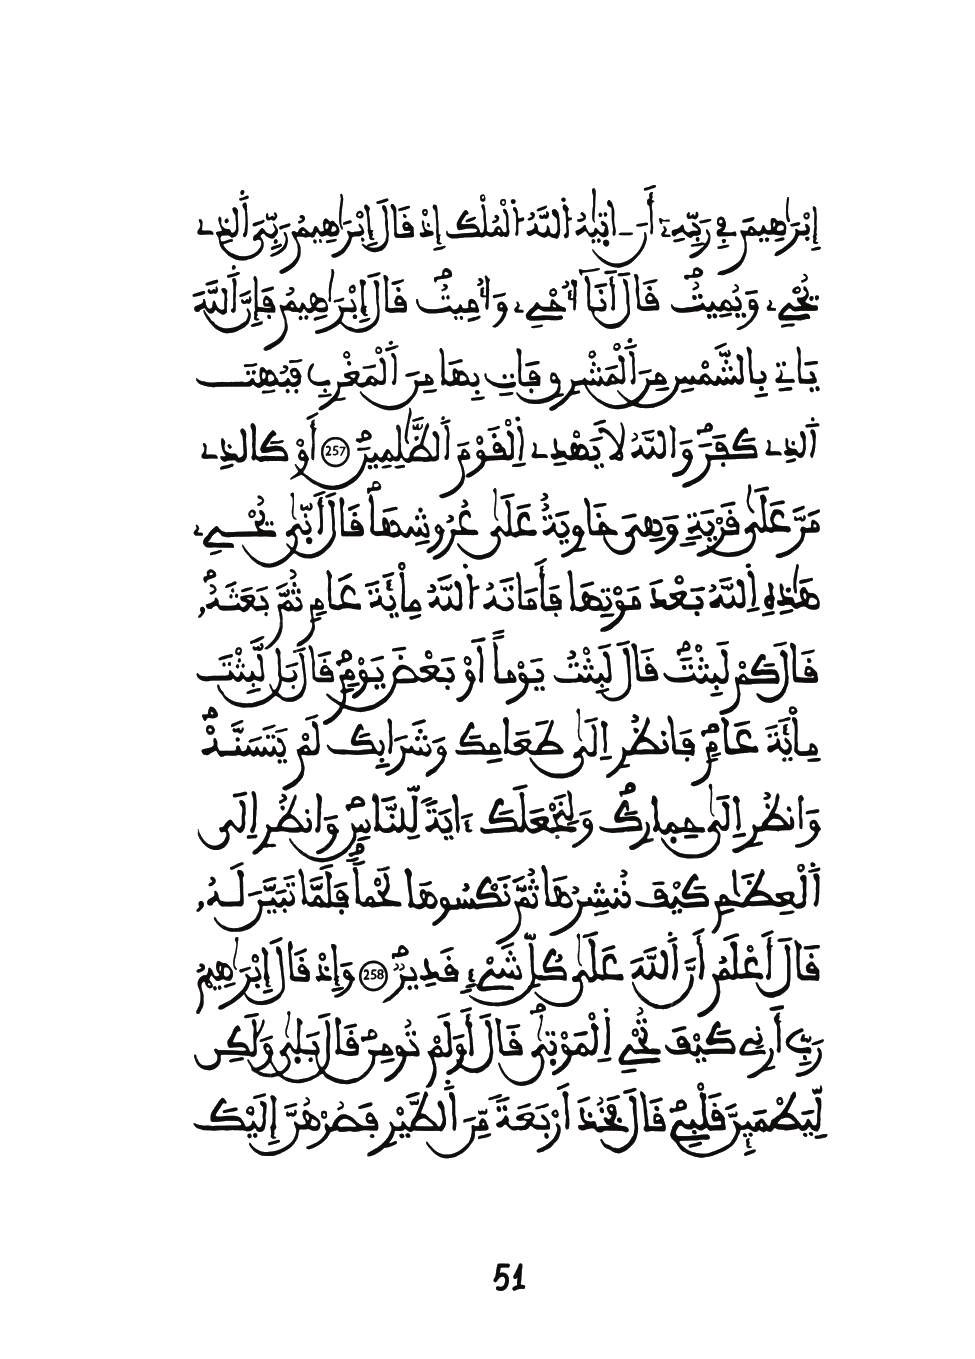 إِبْرَٰهِيمَ فِے رَبِّهِۦٓ أَنَ ـ اتِيٰهُ اُ۬للَّهُ اُ۬لْمُلْكَ إِذْ قَالَ إِبْرَٰهِيمُ رَبِّيَ اَ۬لذِے
يُحْيِۦ وَيُمِيتُۖ قَالَ أَنَآ أُحْيِۦ وَأُمِيتُۖ قَالَ إِبْرَٰهِيمُ فَإِنَّ اَ۬للَّهَ
يَاتِے بِالشَّمْسِ مِنَ اَ۬لْمَشْرِقِ فَاتِ بِهَا مِنَ اَ۬لْمَغْرِبِ فَبُهِتَ
اَ۬لذِے كَفَرَۖ وَاللَّهُ لَا يَهْدِے اِ۬لْقَوْمَ اَ۬لظَّٰلِمِينَۖ 257 أَوْ كَالذِے
مَرَّ عَلَىٰ قَرْيَةٍ وَهِيَ خَاوِيَةٌ عَلَىٰ عُرُوشِهَاۖ قَالَ أَنّ۪ىٰ يُحْيِۦ
هَٰذِهِ اِ۬للَّهُ بَعْدَ مَوْتِهَا فَأَمَاتَهُ اُ۬للَّهُ مِاْئَةَ عَامٖ ثُمَّ بَعَثَهُۥۖ
قَالَ كَمْ لَبِثْتَۖ قَالَ لَبِثْتُ يَوْماً أَوْ بَعْضَ يَوْمٖۖ قَالَ بَل لَّبِثْتَ
مِاْئَةَ عَامٖۖ فَانظُرِ اِلَىٰ طَعَامِكَ وَشَرَابِكَ لَمْ يَتَسَنَّهْۖ
وَانظُرِ اِلَىٰ حِمارِكَۖ وَلِنَجْعَلَكَ ءَايَةٗ لِّلنَّاسِۖ وَانظُرِ اِلَى
اَ۬لْعِظَٰمِ كَيْفَ نُنشِرُهَا ثُمَّ نَكْسُوهَا لَحْماٗۖ فَلَمَّا تَبَيَّنَ لَهُۥ
قَالَ أَعْلَمُ أَنَّ اَ۬للَّهَ عَلَىٰ كُلِّ شَےْءٖ قَدِيرٞۖ 258 وَإِذْ قَالَ إِبْرَٰهِيمُ
رَبِّ أَرِنِے كَيْفَ تُحْيِ اِ۬لْمَوْت۪ىٰۖ قَالَ أَوَلَمْ تُومِنۖ قَالَ بَل۪ىٰ وَلَٰكِن
لِّيَطْمَئِنَّ قَلْبِےۖ قَالَ فَخُذَ أَرْبَعَةٗ مِّنَ اَ۬لطَّيْرِ فَصُرْهُنَّ إِلَيْكَ
51